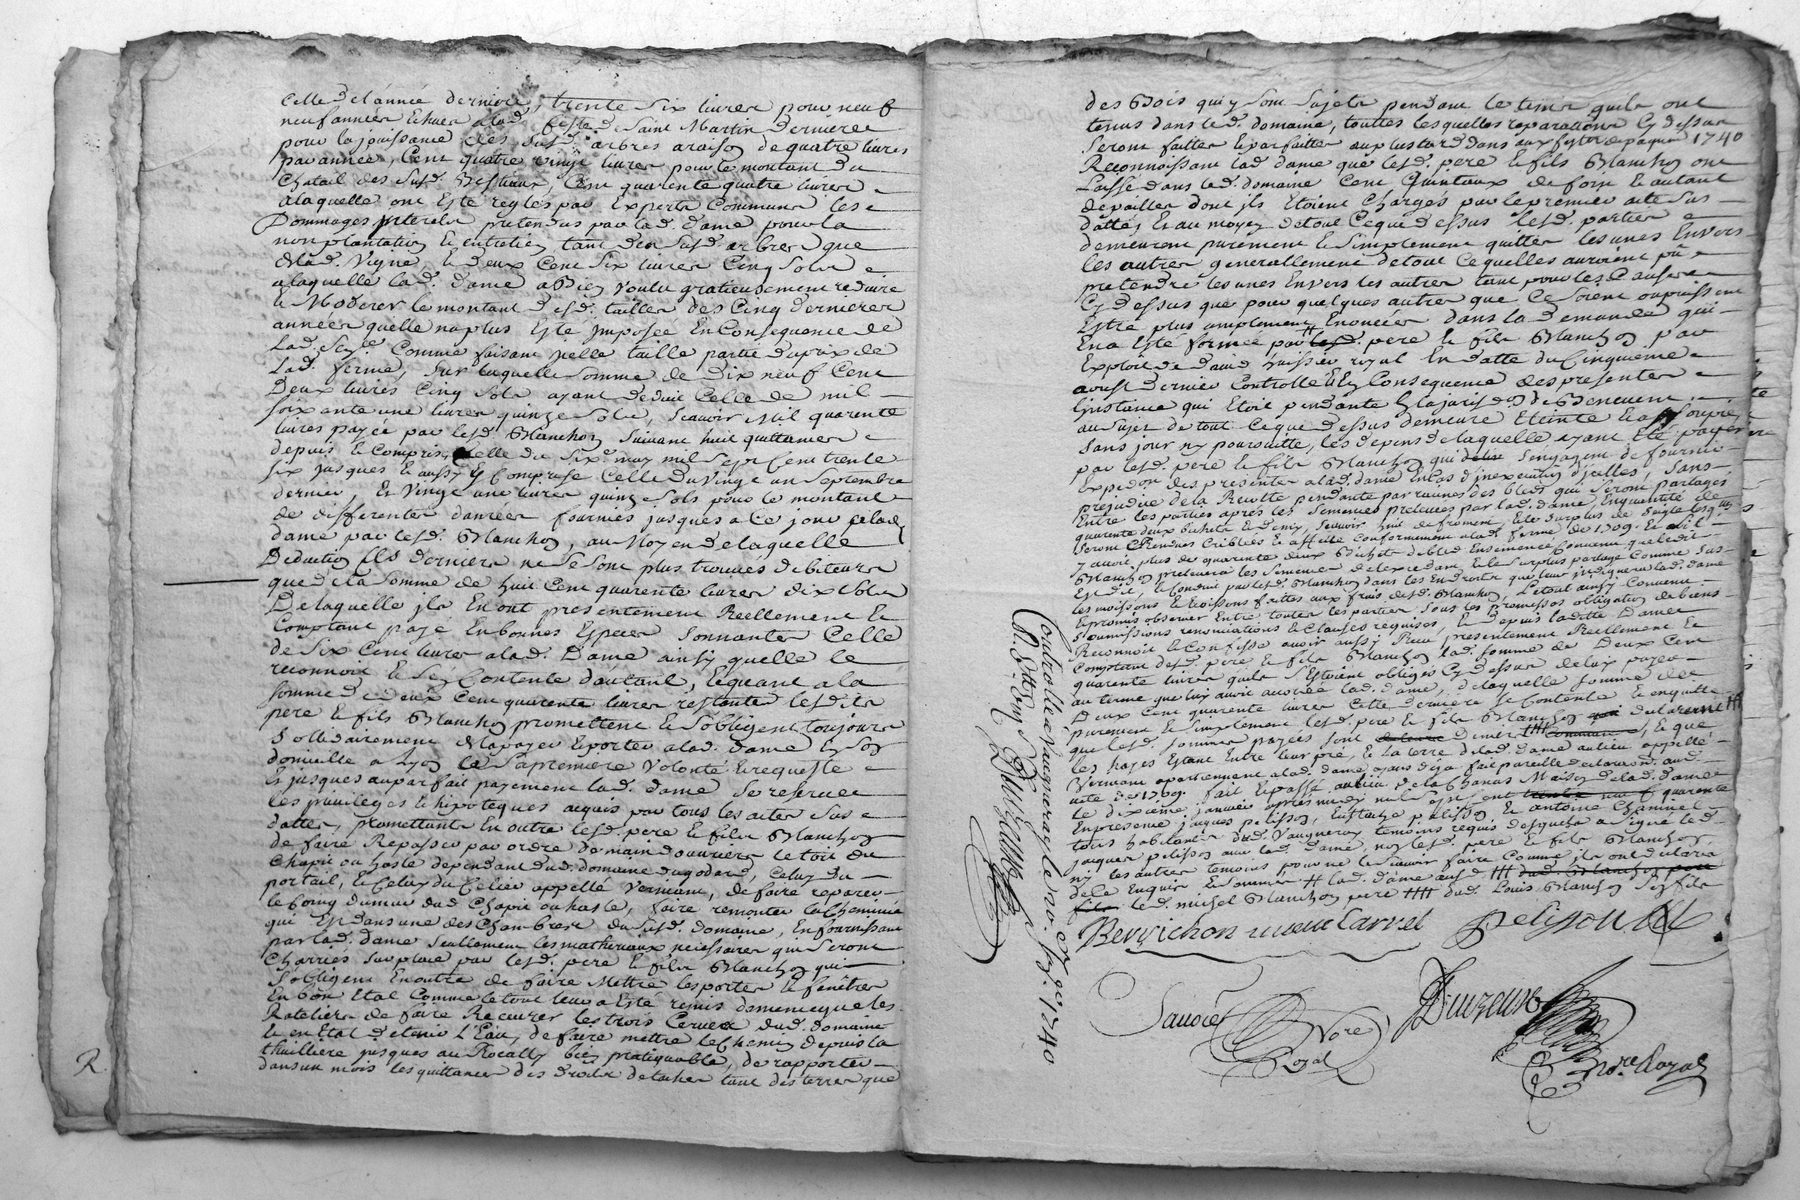 Celle de l'année derniere, trente six livres pour neuf
neuf années echues a lad. feste de Saint Martin derniere
pour la jouissance des susd. arbres araison de quatre livres
par année, Cent quatre vingt livres pour le montant du
Chatail des susd. Bestiaux, Cent quarente quatre livres
a laquelle ont esté reglés par Experts Communs les
Dommages jnterets pretendus par lad. dame pour la
non plantation & entretien tant des susd. arbres que
de lad. Vigne, & deux Cent six livres Cinq sols
a laquelle lad. dame a bien voulu gratieusement reduire
& Moderer le montant desd. tailles des Cinq dernieres
années quelle na plus esté jmposée En Consequence de
Lad. Comme faisant jcelle taille partie du prix de
Lad. ferme, sur laquelle somme de Dix neuf Cent
Deux livres Cinq sols ayant deduit Celle de mil
soixante une livres quinze sols, scavoir Mil quarente
livres payée par lesd. Blanchon suivant huit quittances
depuis & Compris Celle du six may mil sept Cent trente
six jusques & aussy Compris Celle du vingt un Septembre
dernier, Et Vingt une livres quinze sols pour le montant
de differentes danrées fournies jusques a Ce jour a lad.
dame par lesd. Blanchon, au Moyen de laquelle
Deduction Ces derniers ne se sont plus trouvés debiteurs
que de la somme de huit Cent quarente livres dix sols
De laquelle jls En ont presentement Reellement &
Comptant payé En bonnes Especes sonnantes Celle
de six Cent livres a lad. Dame ainsy quelle le
reconnoit & sen Contente d'autant, Et quant a la
somme de deux Cent quarente livres restantes lesdits
pere & fils Blanchon promettent & s'obligent toujours
solidairement de la payer & porter a lad. dame En son
domicille a Lyon a sa premiere volonté & requeste
Et jusques au parfait payement lad. dame se reserve
les privileges & hipoteques acquis par tous les actes sus
dattés, promettants En outre lesd. pere & fils Blanchon
de faire Repasser par ordre de main d'ouvriers le toit du
Chapit ou haste dependant dud. domaine dugodard, Celuy du
portail, & Celuy du Celier appellé Verniant, de faire reparer
le Coing du mur dud. Chapit ou haste, faire remonter la Cheminée
qui Est dans une des Chambres du susd. domaine, En fournissant
par lad. dame seullement les matheriaux necessaires qui seront
Charriés sur place par lesd. pere & fils Blanchon qui
s'obligent En outre de faire Mettre les portes & fenêtres
En bon Etat Comme le tout leur a Esté remis de meme que les
Rateliers de faire Recurer les trois du d. domaine
& en Etat de tenir L'Eau, de faire mettre le Chemin depuis la
thuilliere jusques au Rocally bien pratiquable, de rapporter
dans un mois les quittances des droits de tacher tant des terres que
R
des Bois qui y sont sujets pendant le tems quils ont
tenus dans led. domaine, touttes lesquelles reparations Cy dessus
seront faittes & parfaittes au plus tard dans aux festes de paques 1740
Reconnoissant lad. dame que lesd. pere & fils Blanchon ont
Laissé dans led. domaine Cent Quintaux de foin & autant
de pailles dont jls Etoient Chargés par le premier acte sus
datté, Et au moyen de tout Ce que dessus lesd. parties
demeurent purement & simplement quittes les unes Envers
les autres generallement de tout Ce quelles auroient pû
pretendre les unes Envers les autres tant pour les Causes
Cy dessus que pour quelques autres que Ce soient ou puissent
Estre plus amplement Enoncées dans la demande qui
En a Esté formée par lesd. pere & fils Blanchon par
Exploit de David huissier royal En datte du Cinquieme
aoust dernier Controllé & En Consequence des presentes
L'instance qui Etoit pendante En la jurisdon de Benevent
au sujet de tout Ce que dessus demeure Eteinte & assoupie
sans jour ny poursuitte, les depens de laquelle ayant Eté payés
par lesd. pere & fils Blanchon qui s'engagent de fournir
Expedon des presentes a lad. dame En Cas d'inexecution d'jcelles, sans
prejudice de la Recolte pendante par racines des bleds qui seront partagés
Entre les parties apres les semences prelevées par lad. dame, En quantité de
quarente deux bichets & demy, scavoir huit de froment, & le surplus de seigle lesqls
seront Rendus Criblés & affetté Conformement a lad. ferme de 1709. Et s'il
y avoit plus de quarente deux Bichets de bled Ensemencé Convenu que lesdits
Blanchon preleveront les semences de l'excedant, & le surplus partagé Comme sus
Est dit, & Conduit par lesd. Blanchon dans les Endroits que leur jndiquera lad. dame
les moissons & boissons faittes aux frais desd. Blanchon, Le tout ainsy Convenu
& promis observer Entre touttes les parties sous les promesses obligation de biens
soumissions renonciations & Clauses requises, Et depuis laditte Dame
Reconnoit & Confesse avoir aussy Receu presentement Reellement &
Comptant desd. pere & fils Blanchon lad. somme de Deux Cent
quarente livres quils s'Estoient obligés Cy dessus de luy payer
au terme que luy auroit accordé lad. dame, de laquelle somme de
Deux Cent quarente livres Cette derniere se Contente & en quitte
purement & simplement lesd. pere & fils Blanchon
que lesd. sommes payées sont & que
les hayes Etant Entre leur pré, & la terre de lad. dame au lieu appellé
Vermont apartiennent a lad. dame, ayans deja fait pareille declaration aud.
acte de 1709. fait & passé au lieu de la Chanas Maison de lad. dame
le dixieme janvier apres midy mil sept cent quarente
En presence jacques pelisson, Eustache pelisson & antoine Chaminel
tous habitans dud. Vaugneray temoins requis desquels a signé led.
jacques pelisson avec lad. dame, non lesd. pere & fils Blanchon
ny les autres temoins, pour ne le scavoir faire Comme jls ont declaré
de ce Enquis & sommés # lad. dame aud. ### dud. Blanchon pere
fils led. michel Blanchon pere #### dud. Louis Blanchon son fils
Bervichon veuve Carret
Pelisson
Sauoret
Nore
Royal
Duvzeuse
Nore Royal
Controllé a Vaugneray le 20. 1740